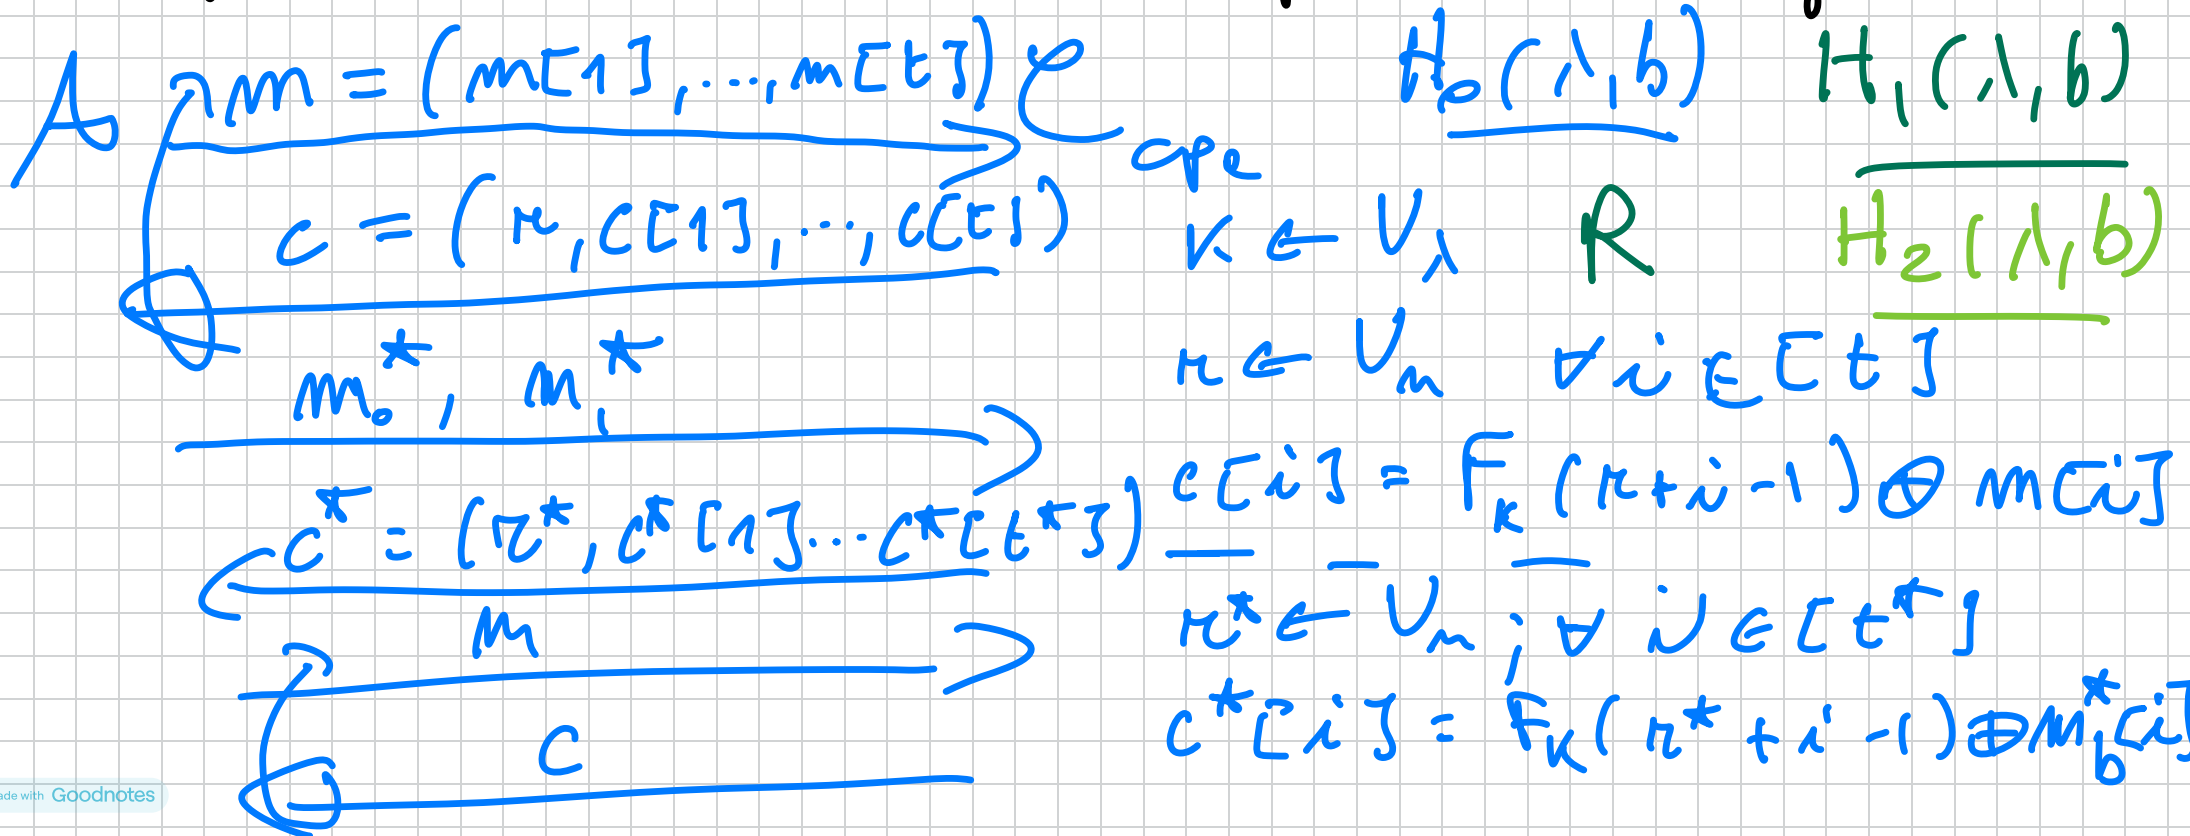 A m = (m[1], ..., m[t]) C_CPA H_0(λ,b) H_1(λ,b)
c = (r, c[1], ..., c[t]) K ← U_λ R H_2(λ,b)
m_0^*, m_1^* r ← U_n ∀ i ∈ [t]
c[i] = F_K(r+i-1) ⊕ m[i]
c^* = (r^*, c^*[1]... c^*[t^*])
m r^* ← U_n; ∀ i ∈ [t^*]
c c^*[i] = F_K(r^*+i-1) ⊕ m_b^*[i]
ade with Goodnotes